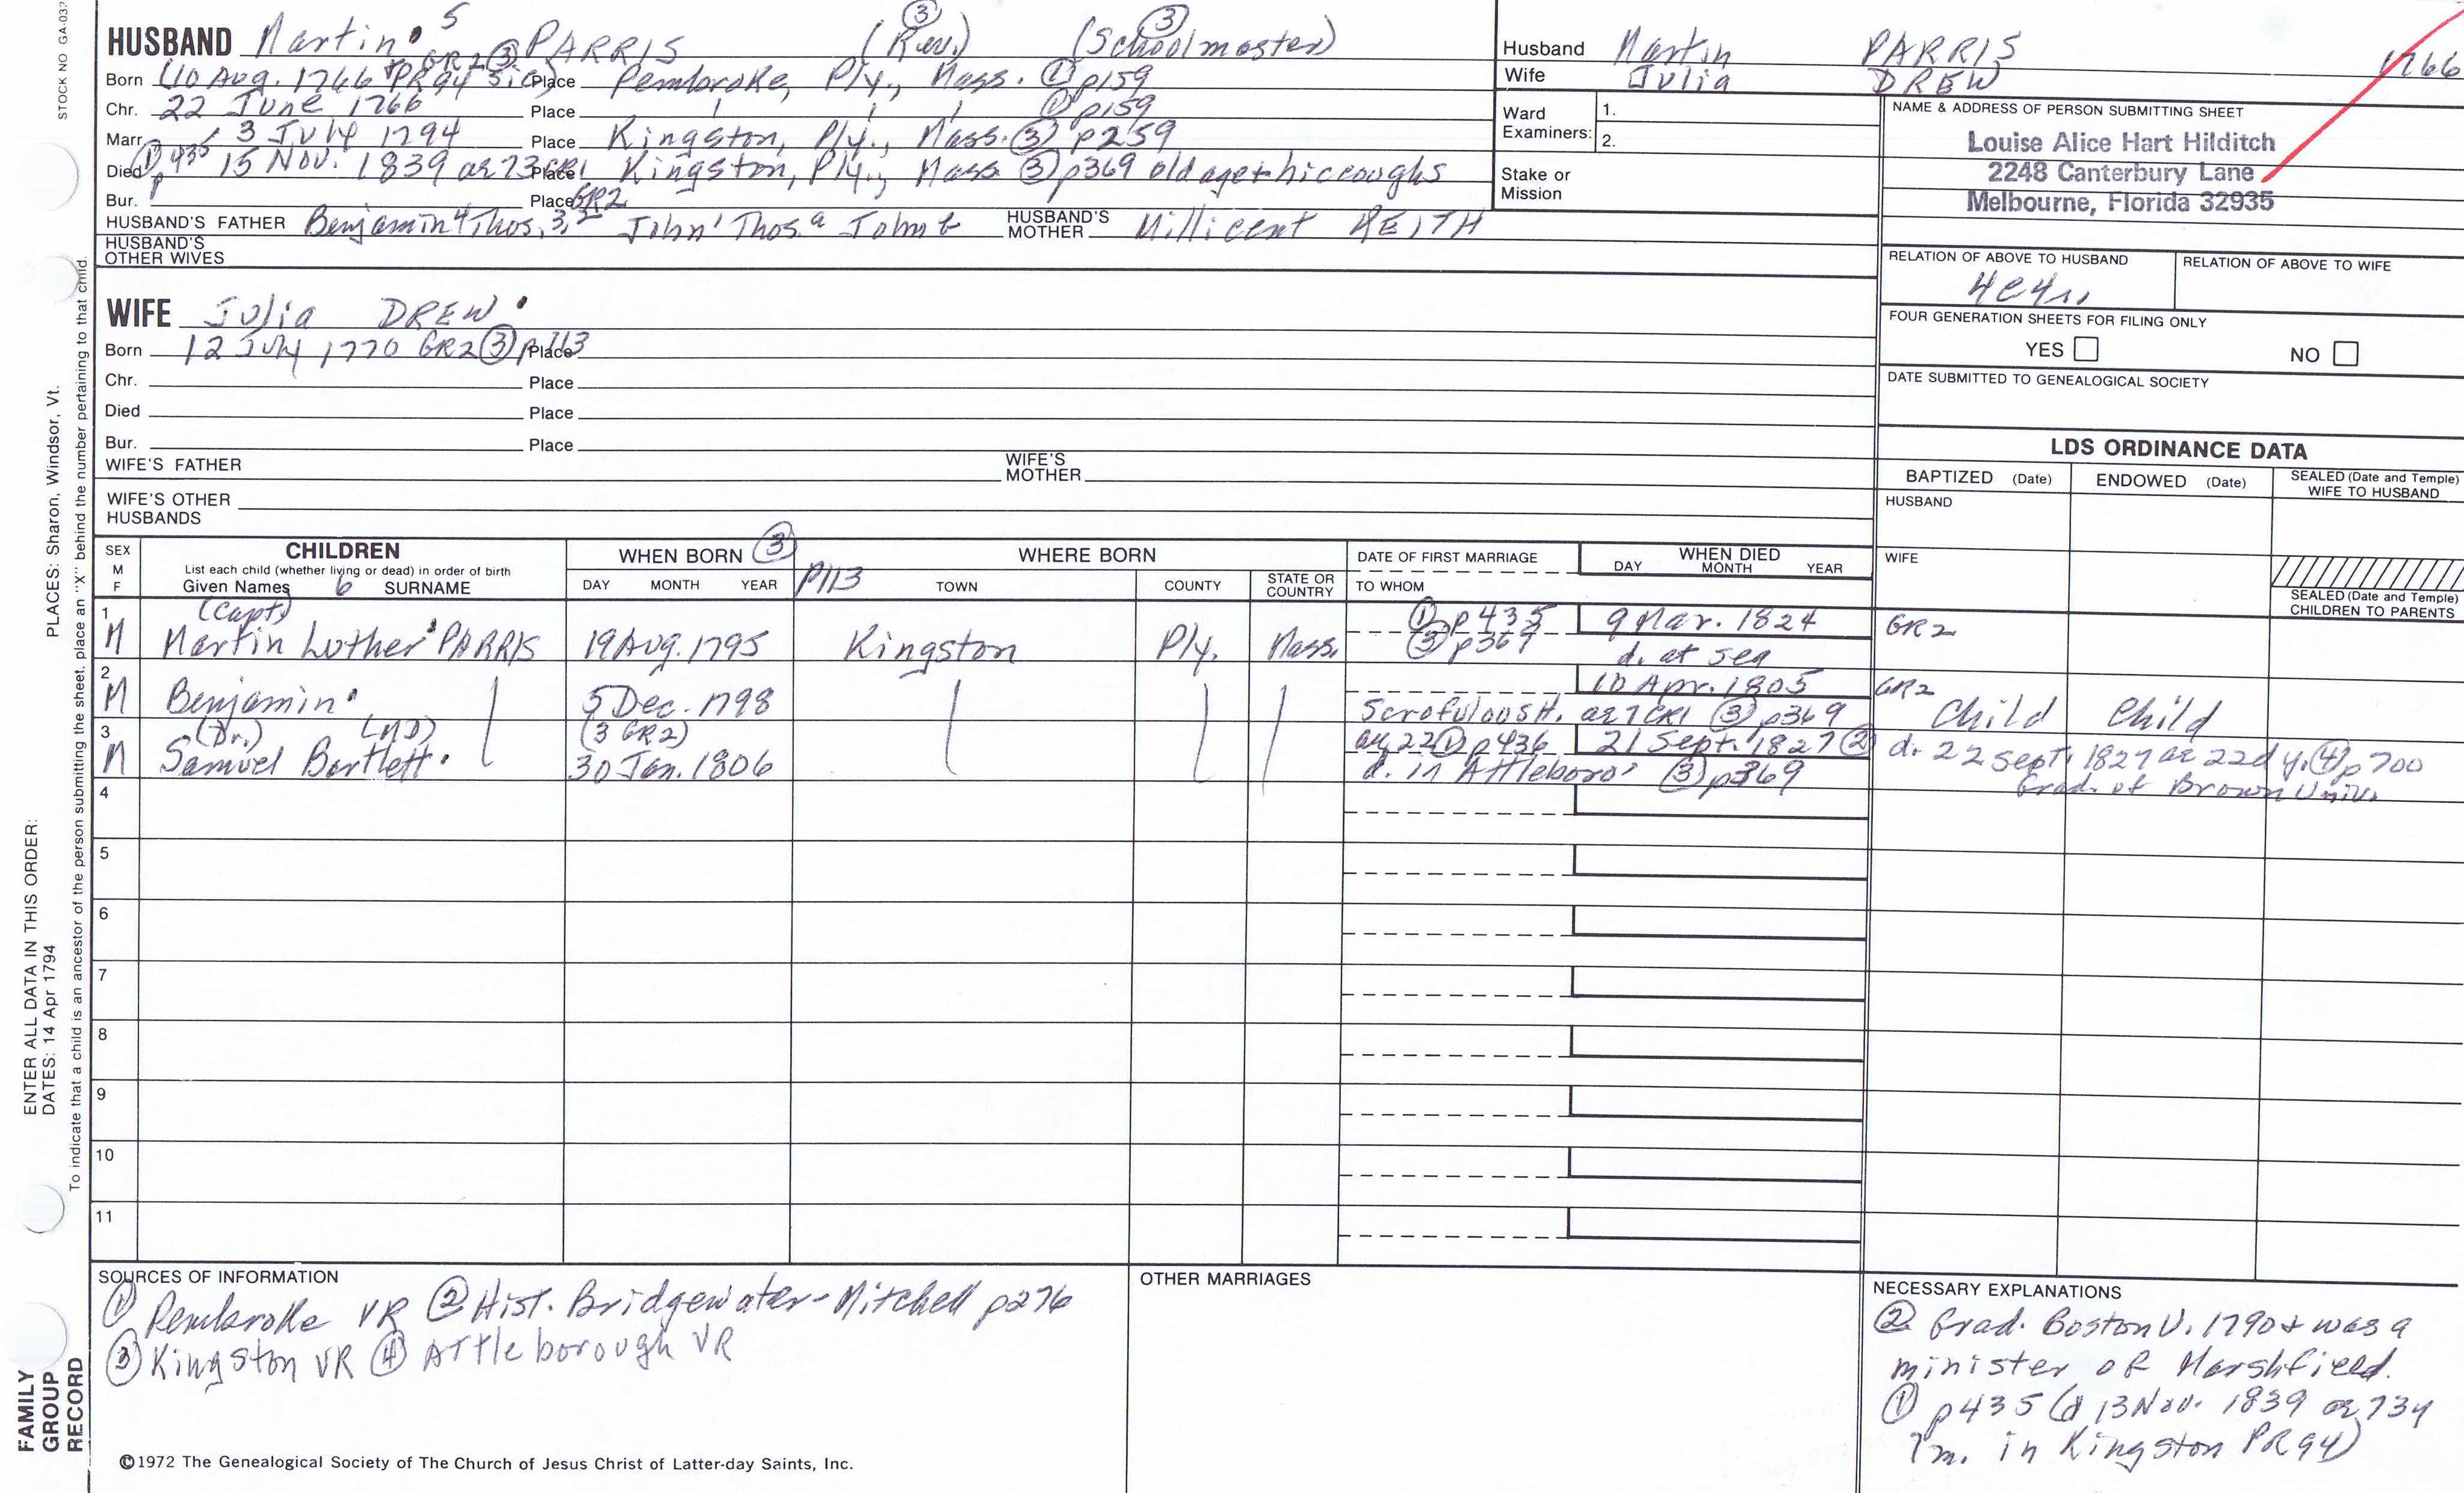 STOCK NO GA-032
HUSBAND Martin 5 PARRIS (Rev.) ③ (Schoolmaster) ③
GR2 ③
Born (10 Aug. 1766 PR94 sic) Place Pembroke, Ply., Mass. ① p159
Chr. 22 June 1766 Place ① p159
Marr. 3 July 1794 Place Kingston, Ply., Mass. ③ p259
Died ① p435 15 Nov. 1839 ae 73 CR1 Place Kingston, Ply., Mass ③ p369 old age + hiccoughs
Bur. Place GR2
HUSBAND'S FATHER Benjamin 4 Thos. 3, 2 John 1 Thos a John b HUSBAND'S MOTHER Millicent KEITH
HUSBAND'S OTHER WIVES
WIFE Julia DREW
Born 12 July 1770 GR2 ③ p113 Place
Chr. Place
Died Place
Bur. Place
WIFE'S FATHER WIFE'S MOTHER
WIFE'S OTHER HUSBANDS
Husband Martin PARRIS 1766
Wife Julia DREW
Ward Examiners: 1.
2.
Stake or Mission
NAME & ADDRESS OF PERSON SUBMITTING SHEET
Louise Alice Hart Hilditch
2248 Canterbury Lane
Melbourne, Florida 32935
RELATION OF ABOVE TO HUSBAND RELATION OF ABOVE TO WIFE
FOUR GENERATION SHEETS FOR FILING ONLY
YES NO
DATE SUBMITTED TO GENEALOGICAL SOCIETY
LDS ORDINANCE DATA
BAPTIZED (Date) ENDOWED (Date) SEALED (Date and Temple) WIFE TO HUSBAND
HUSBAND
WIFE
SEALED (Date and Temple) CHILDREN TO PARENTS
SEX M F CHILDREN WHEN BORN ③ p113 WHERE BORN DATE OF FIRST MARRIAGE WHEN DIED
List each child (whether living or dead) in order of birth
Given Names 6 SURNAME DAY MONTH YEAR TOWN COUNTY STATE OR COUNTRY TO WHOM DAY MONTH YEAR
1 (Capt) ① p435 9 Mar. 1824 GR2
M Martin Luther PARRIS 19 Aug. 1795 Kingston Ply. Mass. ③ p369 d. at sea
2 10 Apr. 1805 GR2
M Benjamin 5 Dec. 1798 Scrofulous H. ae 7 CR1 ③ p369 Child Child
3 (Dr.) (MD) (3 GR2) ae 22 ① p436 21 Sept. 1827 ② d. 22 Sept. 1827 ae 22d y. ④ p700
M Samuel Bartlett 30 Jan. 1806 d. in Attleboro' ③ p369 Grad. of Brown Univ.
4
5
6
7
8
9
10
11
SOURCES OF INFORMATION
① Pembroke VR ② Hist. Bridgewater-Mitchell p276
③ Kingston VR ④ Attleborough VR
OTHER MARRIAGES
NECESSARY EXPLANATIONS
② Grad. Boston U. 1790 + was a
minister of Marshfield.
① p435 (d 13 Nov. 1839 ae 73y
7m. in Kingston PR94)
©1972 The Genealogical Society of The Church of Jesus Christ of Latter-day Saints, Inc.
FAMILY GROUP RECORD
ENTER ALL DATA IN THIS ORDER:
DATES: 14 Apr 1794
PLACES: Sharon, Windsor, Vt.
To indicate that a child is an ancestor of the person submitting the sheet, place an "X" behind the number pertaining to that child.